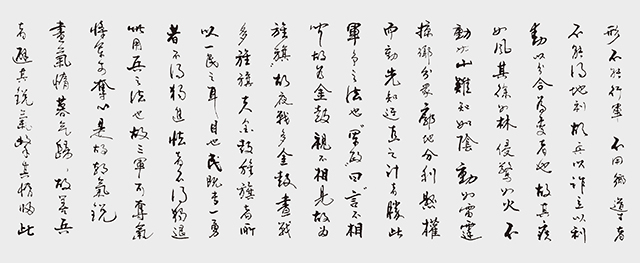 形不能行軍不用鄉導者
不能得地利故兵以詐立以利
動以分合為變者也故其疾
如風其徐如林侵掠如火不
動如山難知如陰動如雷霆
掠鄉分眾廓地分利懸權
而動先知迂直之計者勝此
軍爭之法也軍政曰言不相
聞故為金鼓視不相見故為
旌旗故夜戰多金鼓晝戰
多旌旗夫金鼓旌旗者所
以一民之耳目也民既專一勇
者不得獨進怯者不得獨退
此用兵之法也故三軍可奪氣
將軍可奪心是故朝氣銳
晝氣惰暮氣歸故善兵
者避其銳氣擊其惰歸此